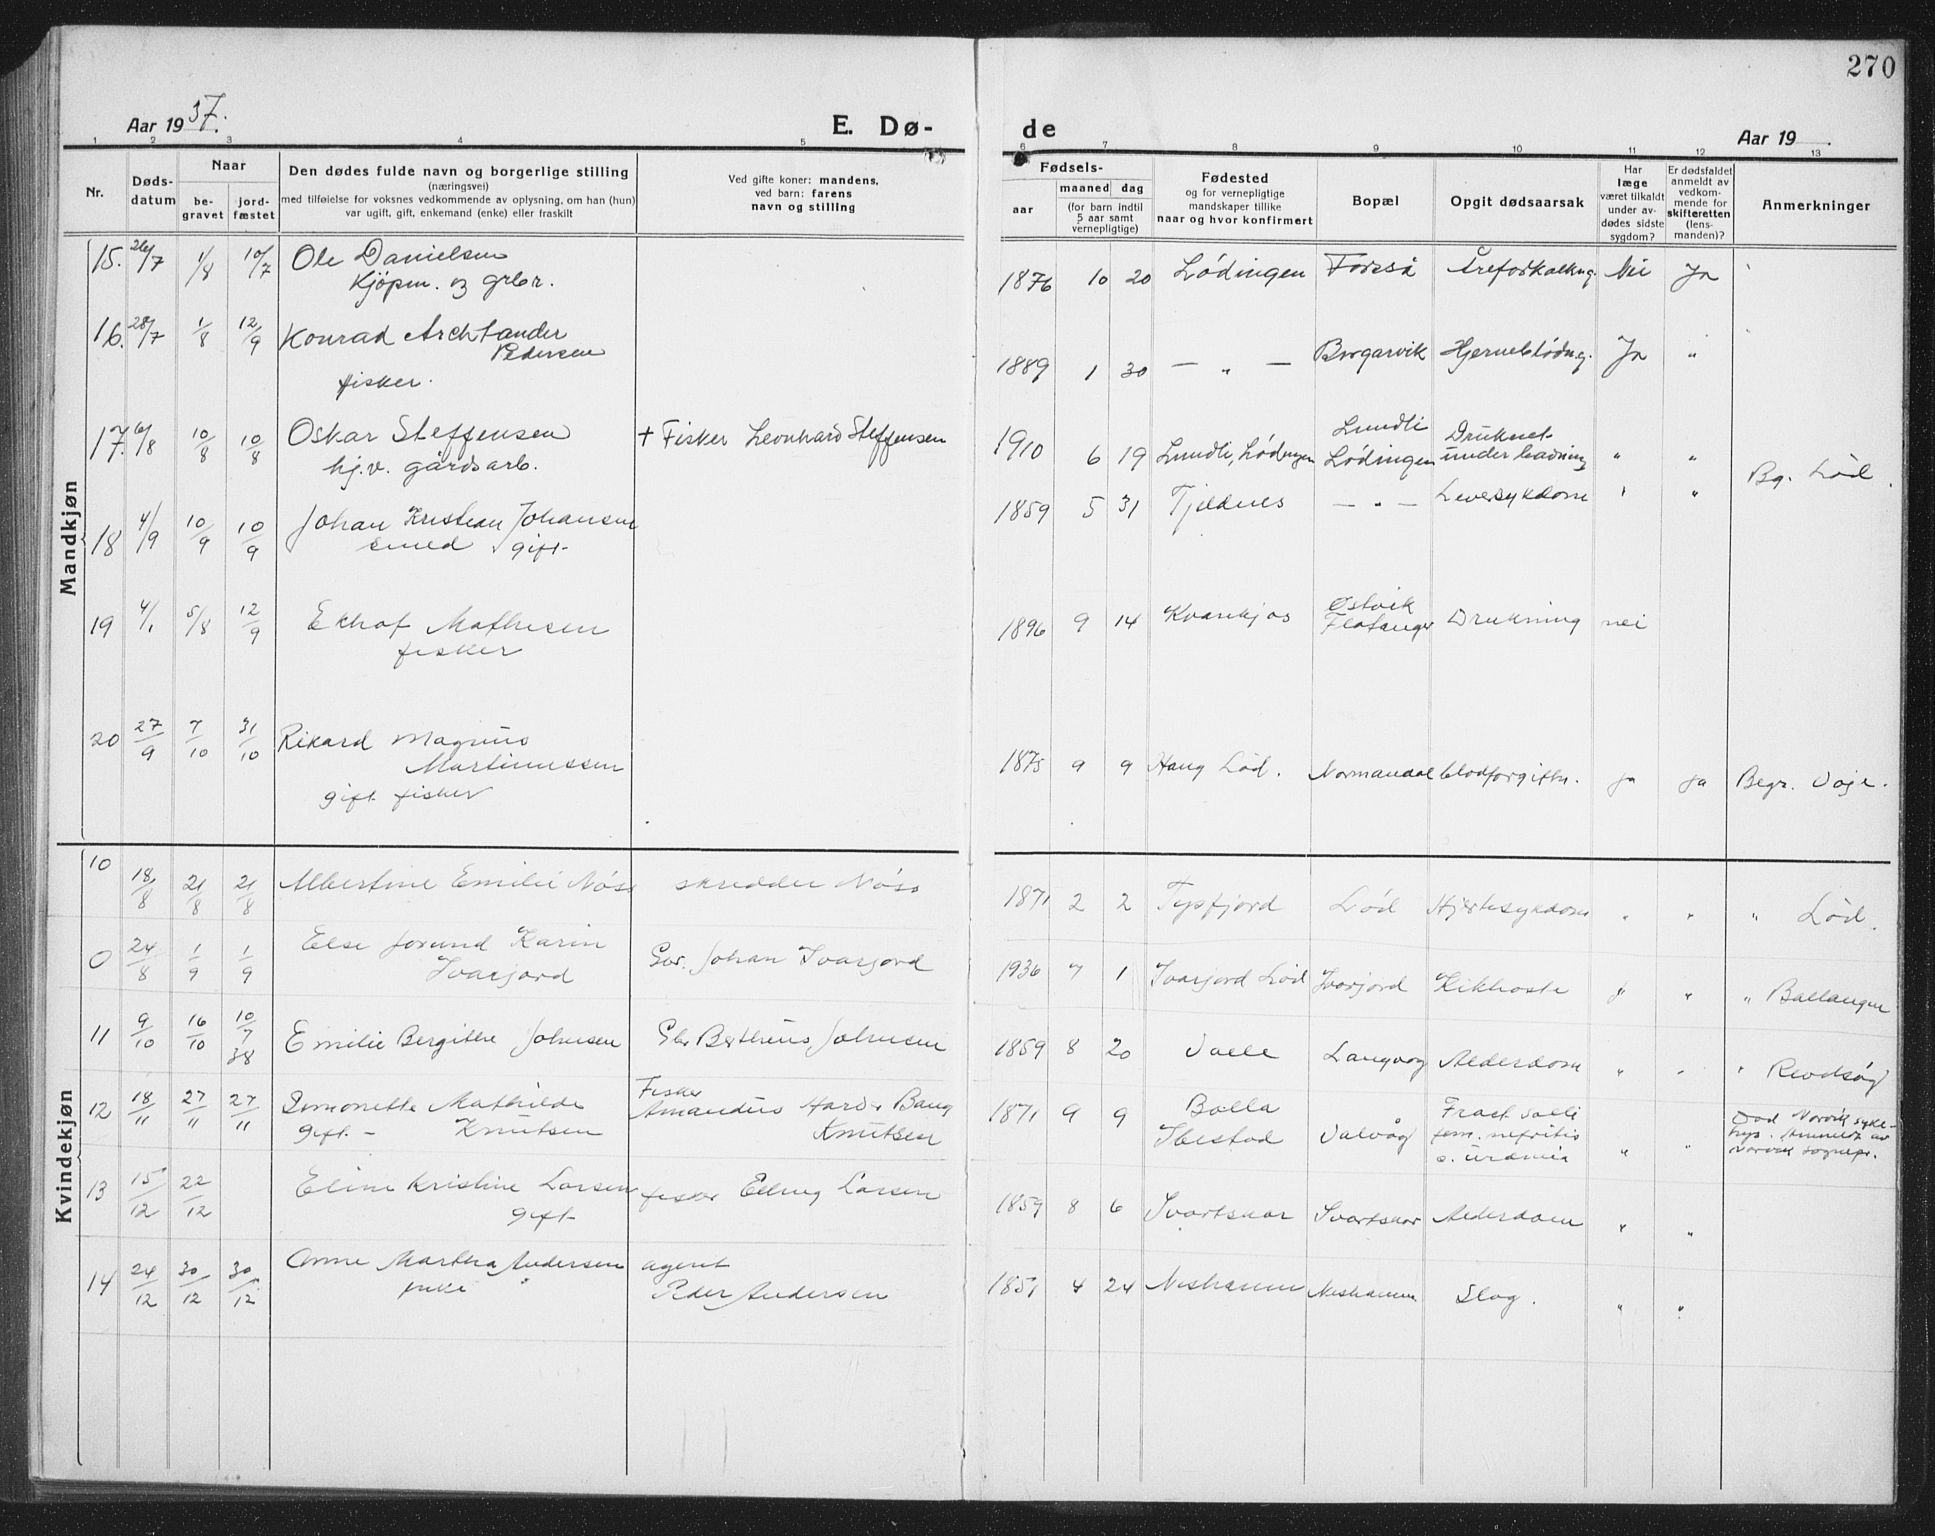 270
Aar 1937.
E. Dø-
de
Aar 19
1 2 3 4 5 6 7 8 9 10 11 12 13
Nr.
Døds-
datum
Naar
be-
gravet
jord-
fæstet
Den dødes fulde navn og borgerlige stilling
(næringsvei)
med tilføielse for voksnes vedkommende av oplysning, om han (hun)
var ugift, gift, enkemand (enke) eller fraskilt
Ved gifte koner: mandens,
ved barn: farens
navn og stilling
Fødsels-
aar
maaned dag
(for barn indtil
5 aar samt
vernepligtige)
Fødested
og for vernepligtige
mandskaper tillike
naar og hvor konfirmert
Bopæl
Opgit dødsaarsak
Har
læge
været tilkaldt
under av-
dødes sidste
sygdom?
Er dødsfaldet
anmeldt av
vedkom-
mende for
skifteretten
(lens-
manden)?
Anmerkninger
Mandkjøn
15. 26/7 1/8 10/7 Ole Danielsen 1876 10 20 Lødingen Forsså Åreforkalkng Nei Ja
Kjöpm. og grbr.
16. 28/7 1/8 12/9 Konrad Archtander 1889 1 30 — " — Borgarvik Hjerneblödng. Ja "
Pedersen
fisker.
17. 6/8 10/8 10/8 Oskar Steffensen + Fisker Leonhard Steffensen 1910 6 19 Lundli, Lødingen Lundli Druknet
hj.v. gårdsarb. Lødingen under badning " " Bg. Lød.
18 4/9 10/9 10/9 Johan Kristian Johansen 1859 5 31 Tjeldnes — " — Leversykdom " "
smed gift
19 4/1 5/8 12/9 Ekhof Mathisen 1896 9 14 Kvankjos Østvik Drukning nei
fisker Flatanger
20 27/9 7/10 31/10 Rikard Magnus 1875 9 9 Haug Lød. Normandal blodforgiftn. ja ja Begr. Voje.
Martinussen
gift fisker
Kvindekjøn
10 18/8 21/8 21/8 Albertine Emilie Nöss skredder Nöss 1871 2 2 Tysfjord Lød Hjertesykdom " " " Lød.
0 24/8 1/9 1/9 Else Jorund Karin Gbr. Johan Ivarjord 1936 7 1 Ivarjord Lød Ivarjord Kikhoste " " " Ballangen
Ivarjord
11 9/10 16/10 10/7 38 Emilie Bergitte Johnsen Gbr Bertheus Johnsen 1859 8 20 Valle Langvåg Alderdom " " "
12 18/11 27/11 27/11 Simonette Mathilde Fisker
gift - Knutsen Amandus Harder Bang
Knutsen
1871 9 9 Bolla
Ibestad Valvåg
nefritis
uræmia " " Død Narvik syke-
hus. Anmeldt av
Narvik sognepr.
13 15/12 22/12 Eline Kristine Larsen fisker Elling Larsen 1859 8 6 Svartskar Svartskar Alderdom " "
gift
14 24/12 30/12 30/12 Anne Martha Andersen agent
enke Peder Andersen 1851 4 24 Neshamn Neshamn Slag. " "